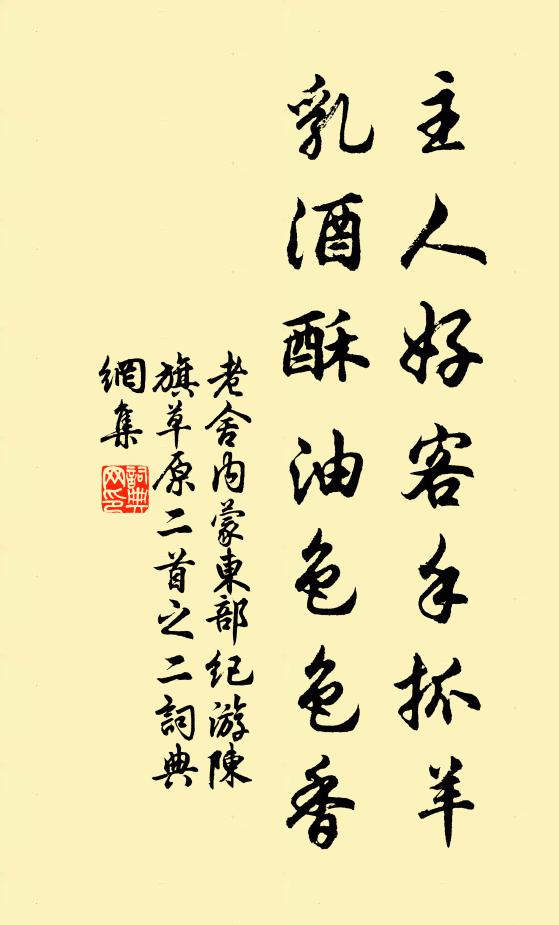 主人好客手抓羊
乳酒酥油色色香
老舍内蒙東部纪游陳
旗草原二首之二詞典
網集
詞典
网印